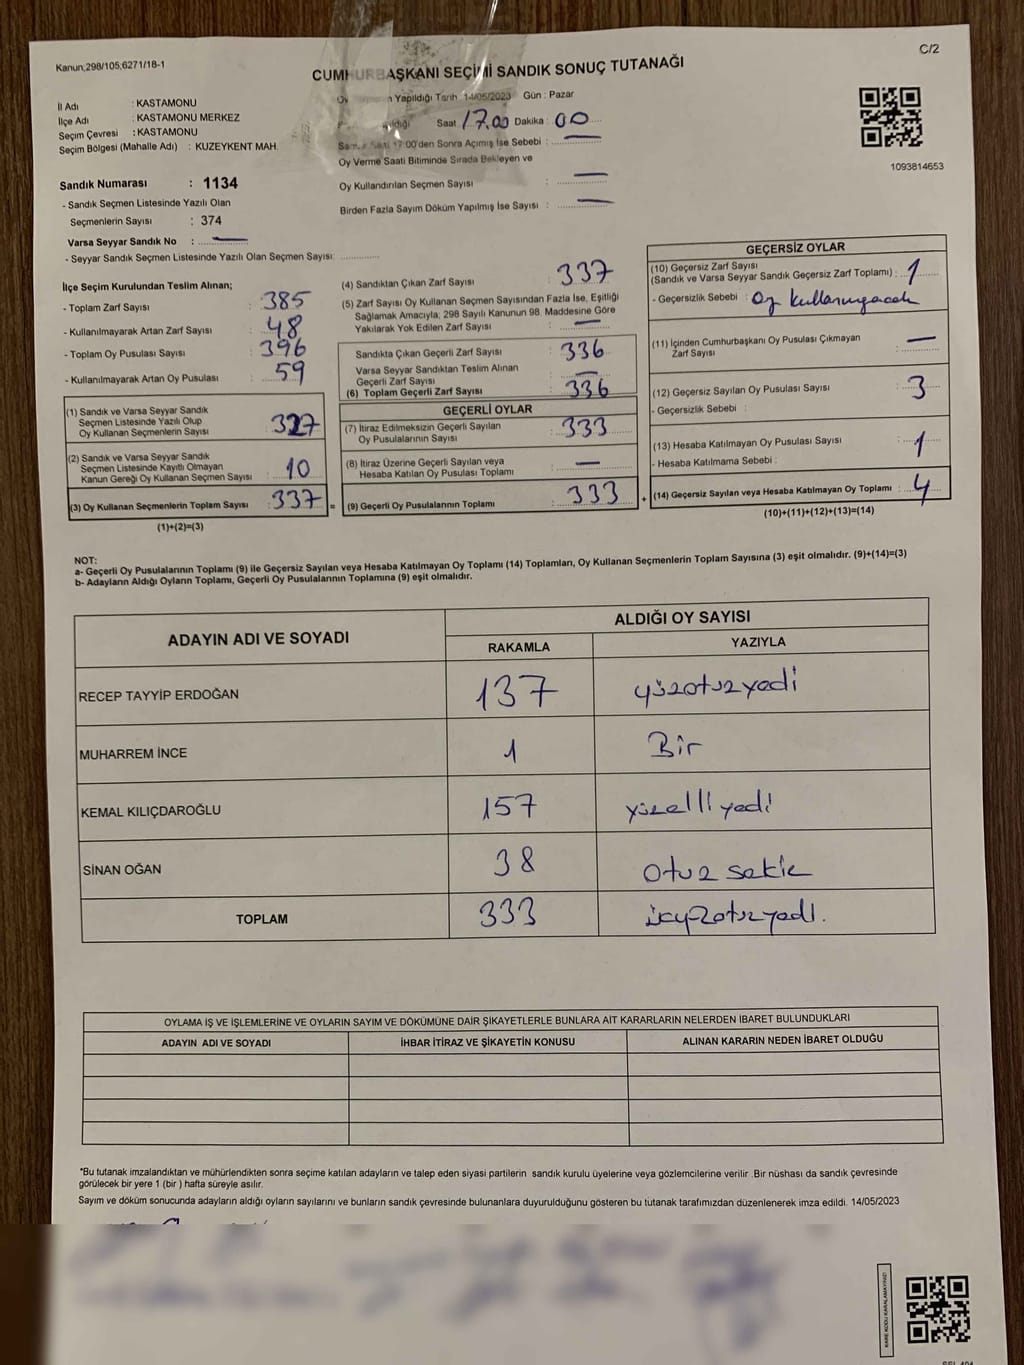 C/2
Kanun;298/105,6271/18-1
CUMHURBAŞKANI SEÇİMİ SANDIK SONUÇ TUTANAĞI
İl Adı : KASTAMONU
İlçe Adı : KASTAMONU MERKEZ
Seçim Çevresi : KASTAMONU
Seçim Bölgesi (Mahalle Adı) : KUZEYKENT MAH.
Yapıldığı Tarih 14/05/2023 Gün : Pazar
Saat 17.00 Dakika : 00
17:00'den Sonra Açımış İse Sebebi :
Oy Verme Saati Bitiminde Sırada Bekleyen ve
Oy Kullandırılan Seçmen Sayısı :
Birden Fazla Sayım Döküm Yapılmış İse Sayısı :
1093814653
Sandık Numarası : 1134
- Sandık Seçmen Listesinde Yazılı Olan
Seçmenlerin Sayısı : 374
Varsa Seyyar Sandık No :
- Seyyar Sandık Seçmen Listesinde Yazılı Olan Seçmen Sayısı:
İlçe Seçim Kurulundan Teslim Alınan;
- Toplam Zarf Sayısı : 385
- Kullanılmayarak Artan Zarf Sayısı : 48
- Toplam Oy Pusulası Sayısı : 396
- Kullanılmayarak Artan Oy Pusulası : 59
(1) Sandık ve Varsa Seyyar Sandık
Seçmen Listesinde Yazılı Olup
Oy Kullanan Seçmenlerin Sayısı : 327
(2) Sandık ve Varsa Seyyar Sandık
Seçmen Listesinde Kayıtlı Olmayan
Kanun Gereği Oy Kullanan Seçmen Sayısı : 10
(3) Oy Kullanan Seçmenlerin Toplam Sayısı : 337 =
(1)+(2)=(3)
(4) Sandıktan Çıkan Zarf Sayısı : 337
(5) Zarf Sayısı Oy Kullanan Seçmen Sayısından Fazla İse, Eşitliği
Sağlamak Amacıyla; 298 Sayılı Kanunun 98. Maddesine Göre
Yakılarak Yok Edilen Zarf Sayısı :
Sandıkta Çıkan Geçerli Zarf Sayısı : 336
Varsa Seyyar Sandıktan Teslim Alınan
Geçerli Zarf Sayısı :
(6) Toplam Geçerli Zarf Sayısı : 336
GEÇERLİ OYLAR
(7) İtiraz Edilmeksizin Geçerli Sayılan
Oy Pusulalarının Sayısı : 333
(8) İtiraz Üzerine Geçerli Sayılan veya
Hesaba Katılan Oy Pusulası Toplamı :
(9) Geçerli Oy Pusulalarının Toplamı : 333 +
GEÇERSİZ OYLAR
(10) Geçersiz Zarf Sayısı
(Sandık ve Varsa Seyyar Sandık Geçersiz Zarf Toplamı) : 1
- Geçersizlik Sebebi : Oy
(11) İçinden Cumhurbaşkanı Oy Pusulası Çıkmayan
Zarf Sayısı :
(12) Geçersiz Sayılan Oy Pusulası Sayısı : 3
- Geçersizlik Sebebi :
(13) Hesaba Katılmayan Oy Pusulası Sayısı : 1
- Hesaba Katılmama Sebebi :
(14) Geçersiz Sayılan veya Hesaba Katılmayan Oy Toplamı : 4
(10)+(11)+(12)+(13)=(14)
NOT:
a- Geçerli Oy Pusulalarının Toplamı (9) ile Geçersiz Sayılan veya Hesaba Katılmayan Oy Toplamı (14) Toplamları, Oy Kullanan Seçmenlerin Toplam Sayısına (3) eşit olmalıdır. (9)+(14)=(3)
b- Adayların Aldığı Oyların Toplamı, Geçerli Oy Pusulalarının Toplamına (9) eşit olmalıdır.
ADAYIN ADI VE SOYADI ALDIĞI OY SAYISI
RAKAMLA YAZIYLA
RECEP TAYYİP ERDOĞAN 137 yüzotuzyedi
MUHARREM İNCE 1 Bir
KEMAL KILIÇDAROĞLU 157 yüzelliyedi
SİNAN OĞAN 38 otuz sekiz
TOPLAM 333
OYLAMA İŞ VE İŞLEMLERİNE VE OYLARIN SAYIM VE DÖKÜMÜNE DAİR ŞİKAYETLERLE BUNLARA AİT KARARLARIN NELERDEN İBARET BULUNDUKLARI
ADAYIN ADI VE SOYADI İHBAR İTİRAZ VE ŞİKAYETİN KONUSU ALINAN KARARIN NEDEN İBARET OLDUĞU
*Bu tutanak imzalandıktan ve mühürlendikten sonra seçime katılan adayların ve talep eden siyasi partilerin sandık kurulu üyelerine veya gözlemcilerine verilir .Bir nüshası da sandık çevresinde
görülecek bir yere 1 (bir ) hafta süreyle asılır.
Sayım ve döküm sonucunda adayların aldığı oyların sayılarını ve bunların sandık çevresinde bulunanlara duyurulduğunu gösteren bu tutanak tarafımızdan düzenlenerek imza edildi. 14/05/2023
KARE KODU KARALAMAYINIZ!